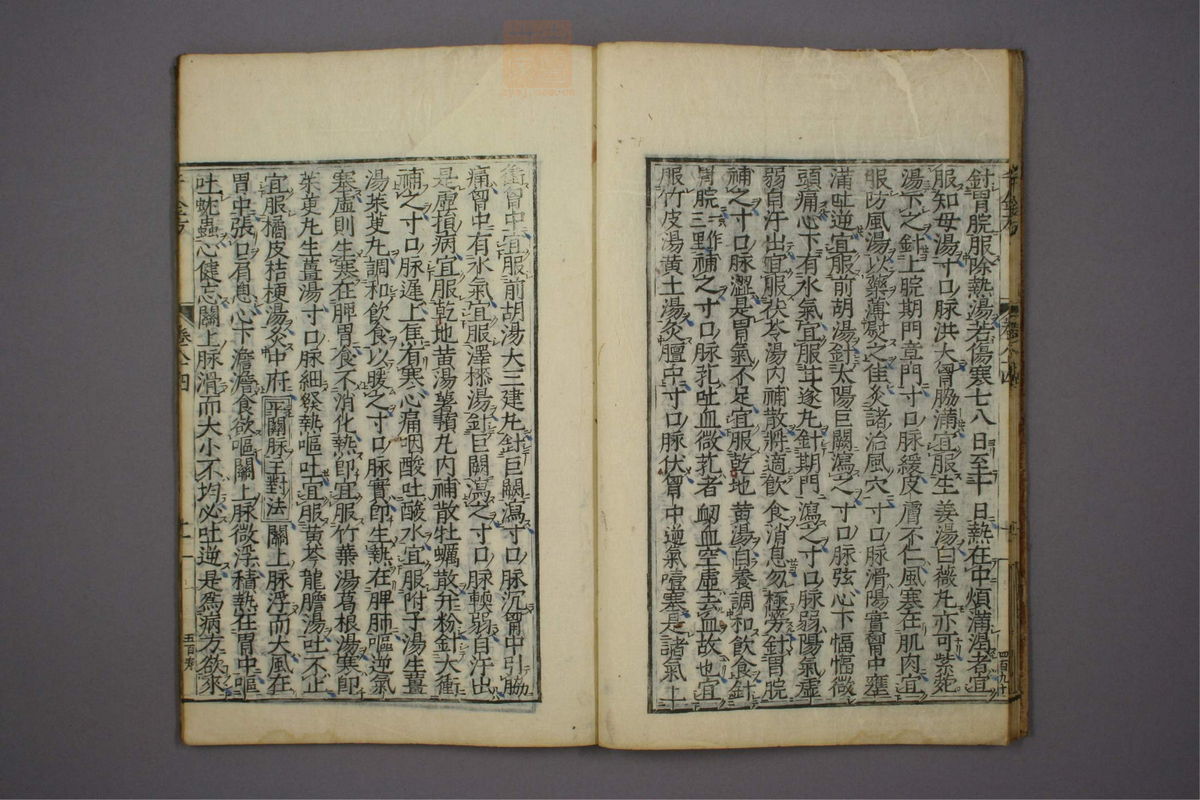 針胃脘服除熱湯若傷寒七八日至十日熱在中煩滿渴者宜
服知母湯寸口脉洪大胷脇滿宜服生姜湯白薇丸亦可紫菀
湯下之針上脘期門章門寸口脉緩皮膚不仁風寒在肌肉宜
服防風湯以藥薄熨之佳灸諸治風穴寸口脉滑陽實胷中壅
滿吐逆宜服前胡湯針太陽巨闕瀉之寸口脉弦心下愊愊微
頭痛心下有水氣宜服甘遂丸針期門瀉之寸口脉弱陽氣虛
弱自汗出宜服茯苓湯內補散將適飲食消息勿極勞針胃脘
補之寸口脉澀是胃氣不足宜服乾地黃湯自養調和飲食針
胃脘一作三里補之寸口脉芤吐血微芤者衂血空虛去血故也宜
服竹皮湯黃土湯灸膻中寸口脉伏胷中逆氣噎塞是諸氣上
衝胷中宜服前胡湯大三建丸針巨闕瀉寸口脉沉胷中引脇
痛胷中有水氣宜服澤㯿湯針巨闕瀉之寸口脉輭弱自汗出
是虛損病宜服乾地黃湯薯蕷丸內補散牡蠣散幷粉針太衝
補之寸口脉遲上焦有寒心痛咽酸吐酸水宜服附子湯生薑
湯茱萸丸調和飲食以暖之寸口脉實即生熱在脾肺嘔逆氣
塞虛則生寒在脾胃食不消化熱即宜服竹葉湯葛根湯寒即
茱萸丸生薑湯寸口脉細發熱嘔吐宜服黃芩龍膽湯吐不止
宜服橘皮桔梗湯灸中府平關脉主對法關上脉浮而大風在
胃中張口肩息心下澹澹食欲嘔關上脉微浮積熱在胃中嘔
吐蚘蟲心健忘關上脉滑而大小不均必吐逆是爲病方欲來
卷八十四
五百
四百九十